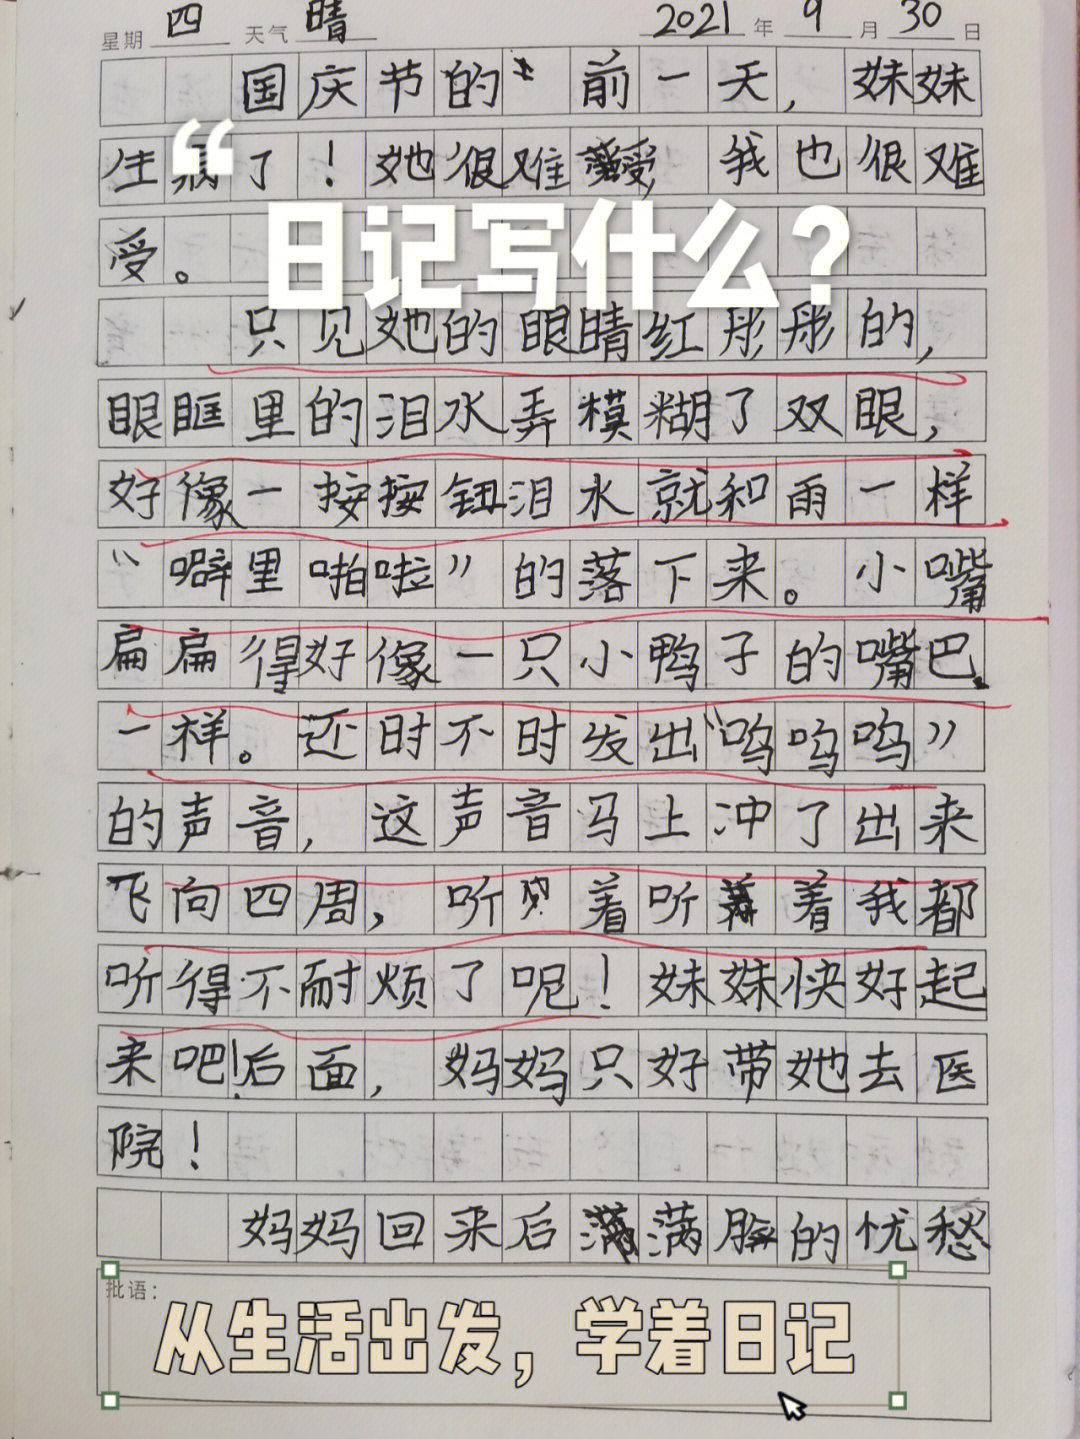 星期 四 天气 晴 2021 年 9 月 30 日
国庆节的前一天，妹妹
生病了！她很难受，我也很难
受。
“
日记写什么？
只见她的眼睛红彤彤的，
眼眶里的泪水弄模糊了双眼，
好像一按按钮泪水就和雨一样
“噼里啪啦”的落下来。小嘴
扁扁得好像一只小鸭子的嘴巴
一样。还时不时发出“呜呜呜”
的声音，这声音马上冲了出来
飞向四周，听着听着我都
听得不耐烦了呢！妹妹快好起
来吧！后面，妈妈只好带她去医
院！
妈妈回来后满脸的忧愁
批语：
从生活出发，学着日记